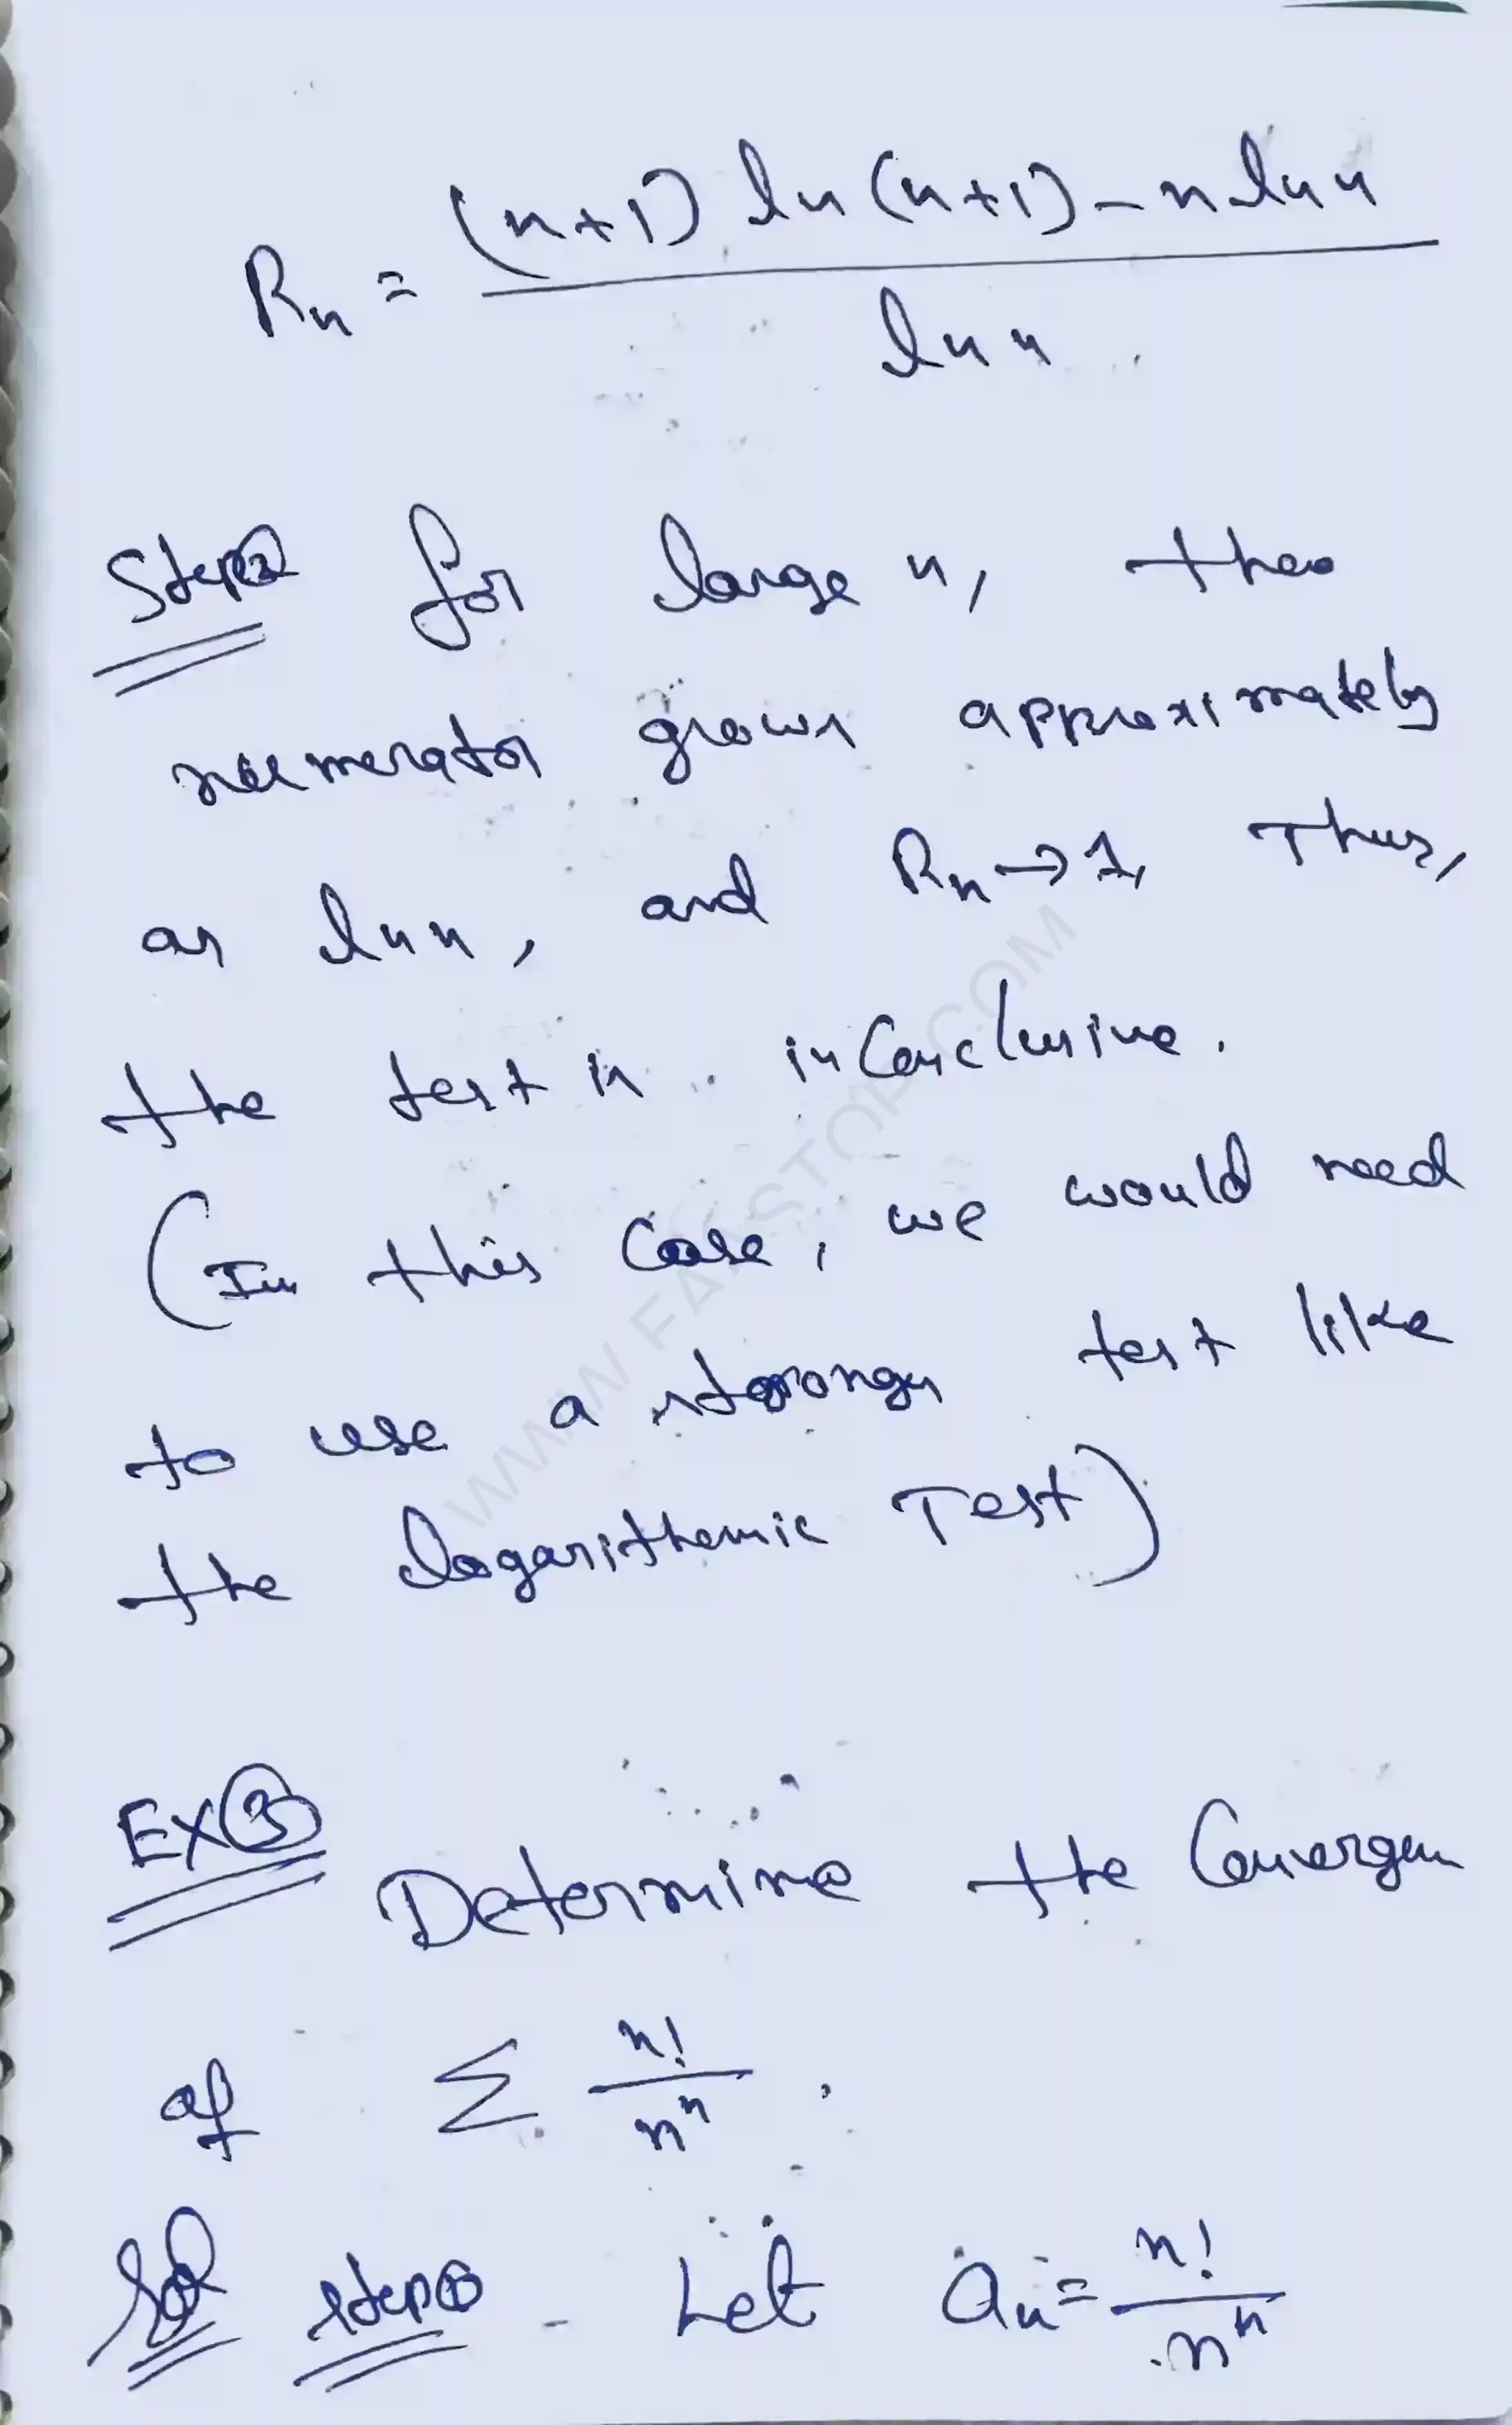 Rn = (n+1) ln(n+1) - n ln n / ln n
Step② for large n, the
numerator grows approximately
as ln n, and Rn → 1, Thus,
the test is inconclusive.
(In this Case, we would need
to use a stronger test like
the logarithemic Test)
EX③ Determine the Convergen
of Σ n!/n^n .
Sol step① - Let an = n!/n^n
WWW.FAASTOP.COM